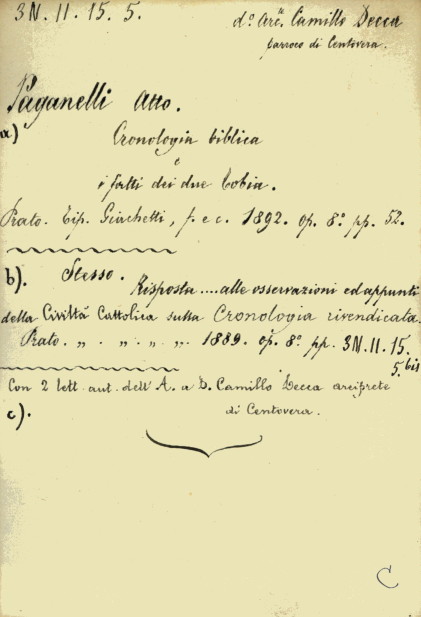 3N. II. 15. 5.
d.º Arc.e Camillo Decca
parroco di Centovera.
Paganelli Atto.
a)
Cronologia biblica
e
i fatti dei due Tobia.
Prato. Tip. Giachetti, f. e c. 1892. op. 8.º pp. 52.
b). Stesso.
Risposta .... alle osservazioni ed appunti
della Civiltà Cattolica sulla Cronologia rivendicata.
Prato. „ . „ „ „. 1889. op. 8.º pp. 3N. II. 15.
5.bis
Con 2 lett. aut. dell'A. a D. Camillo Decca arciprete
c). di Centovera.
C